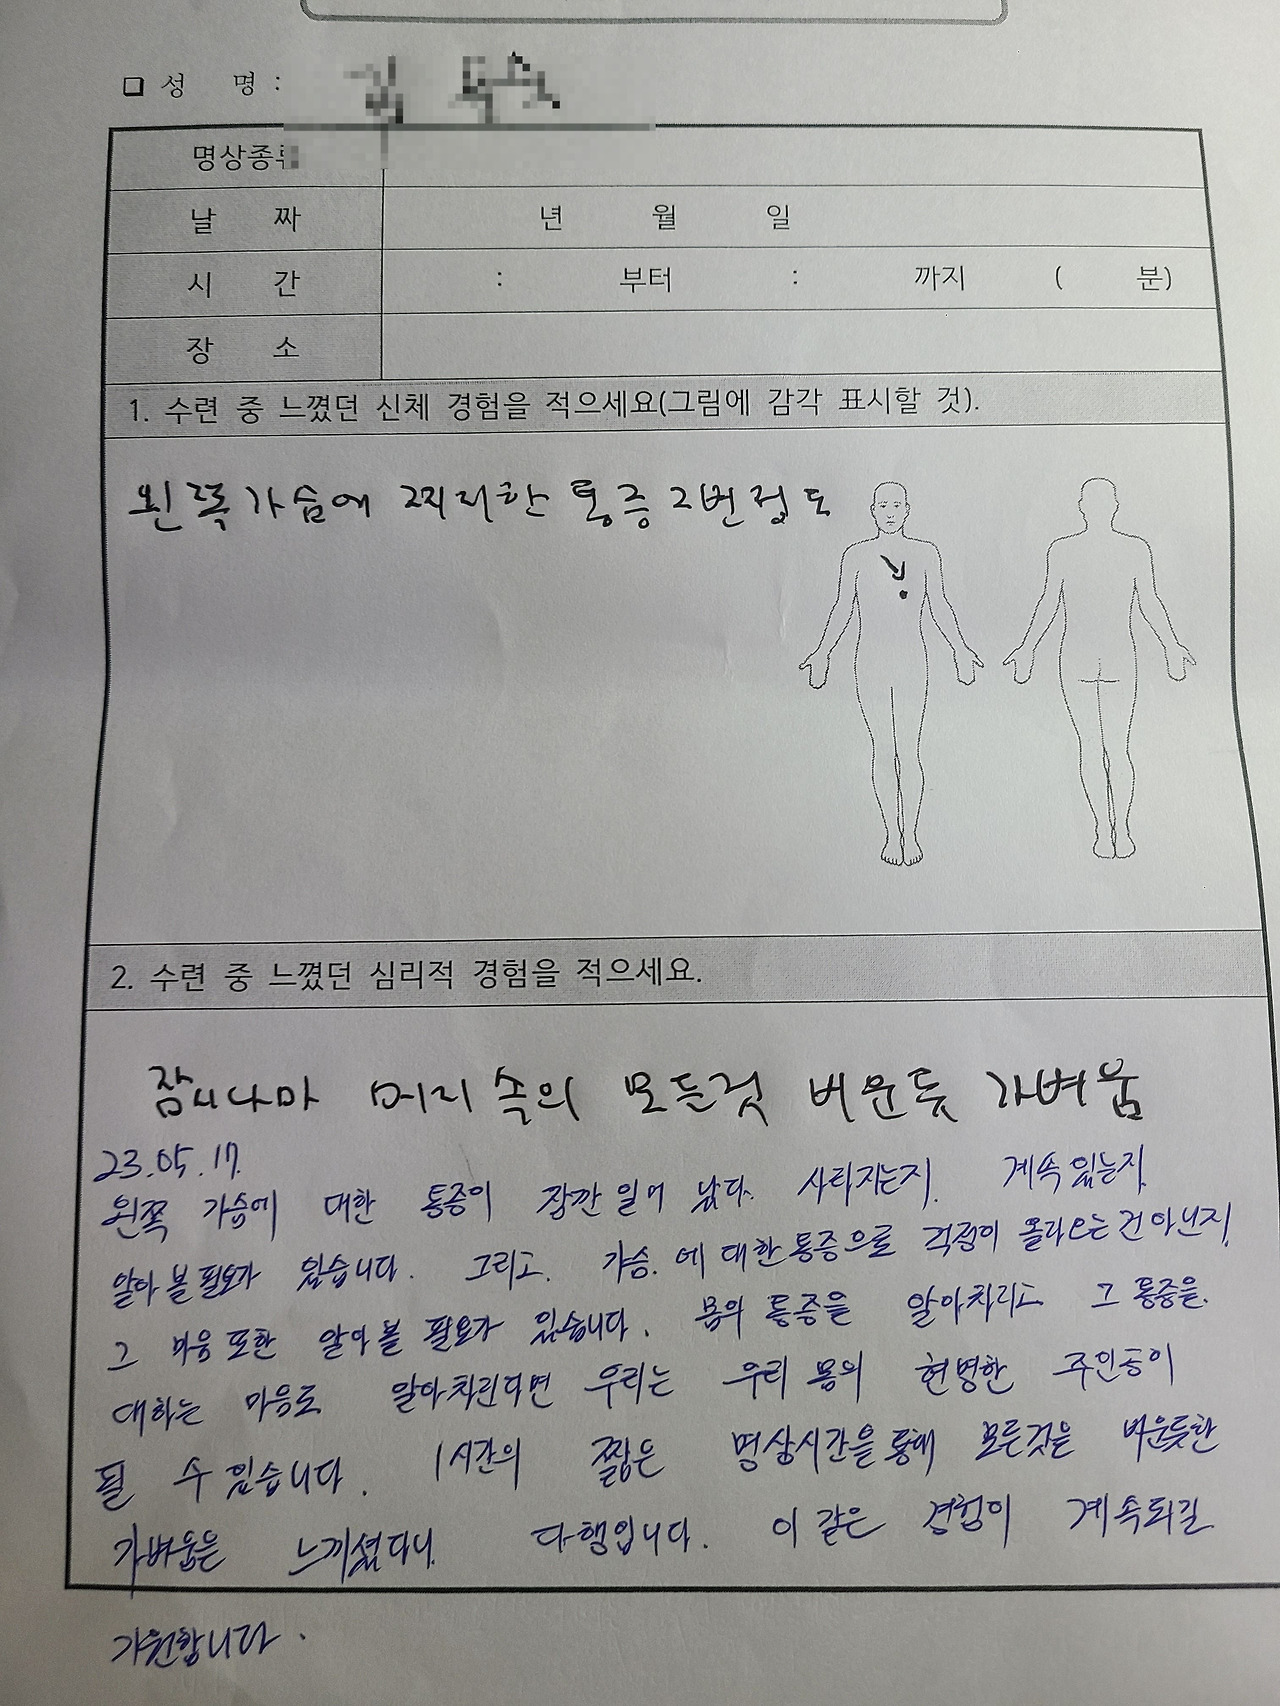 □ 성 명 :
명상종류
날 짜 년 월 일
시 간 : 부터 : 까지 ( 분)
장 소
1. 수련 중 느꼈던 신체 경험을 적으세요(그림에 감각 표시할 것).
왼쪽 가슴에 찌리한 통증 2번정도
2. 수련 중 느꼈던 심리적 경험을 적으세요.
잠시나마 머리속의 모든것 비운듯 가벼움
23.05.17.
왼쪽 가슴에 대한 통증이 잠깐 일어 났다. 사라지는지. 계속있는지
알아 볼 필요가 있습니다. 그리고. 가슴.에 대한 통증으로 걱정이 올라오는건 아닌지,
그 마음 또한 알아 볼 필요가 있습니다. 몸의 통증을 알아차리고 그 통증을.
대하는 마음도 알아차린다면 우리는 우리 몸의 현명한 주인공이
될 수 있습니다. 1시간의 짧은 명상시간을 통해 모든것을 비운듯한
가벼움은 느끼셨다니. 다행입니다. 이 같은 경험이 계속되길
기원합니다.